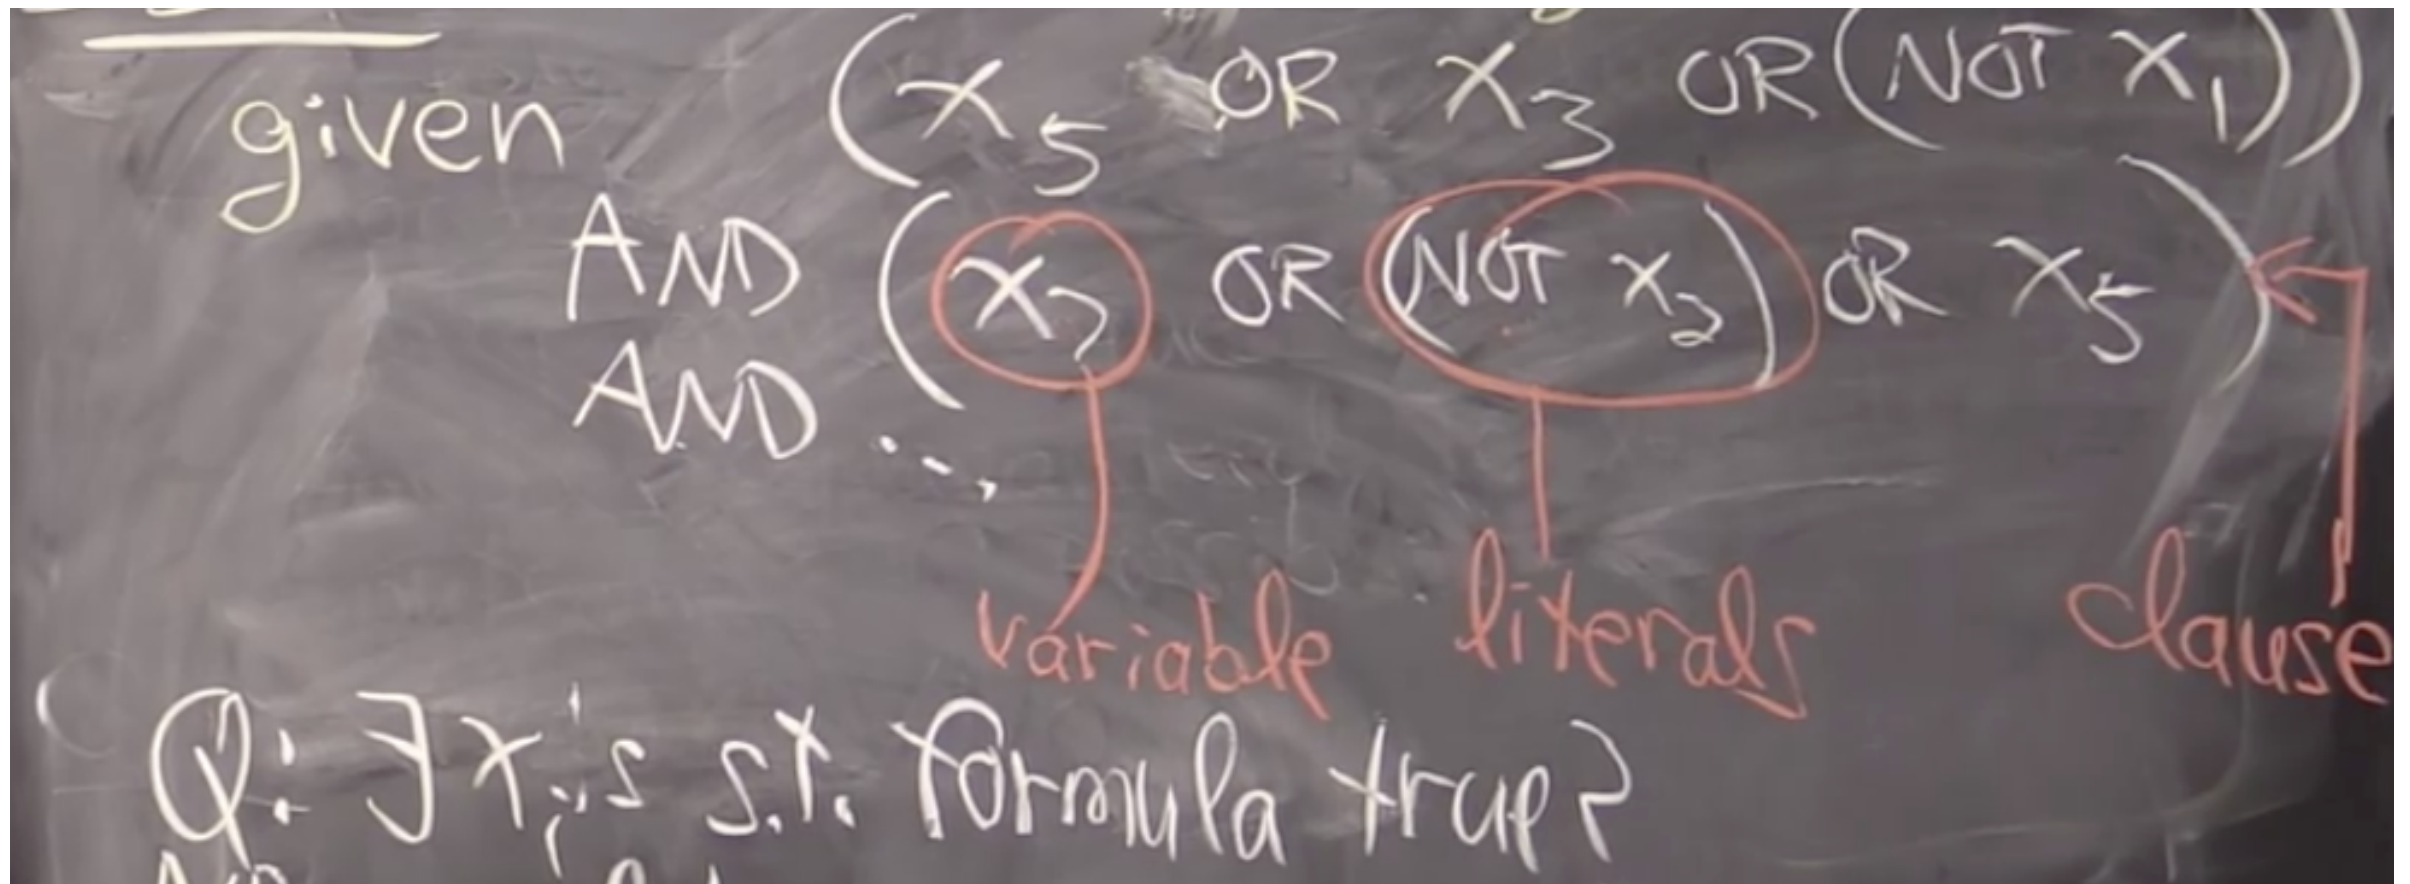 given (x₅ OR x₃ OR (NOT x₁))
AND (x₇ OR (NOT x₂) OR x₅)
AND ⋱
variable literals clause
Q: ∃ xᵢ's s.t. formula true?